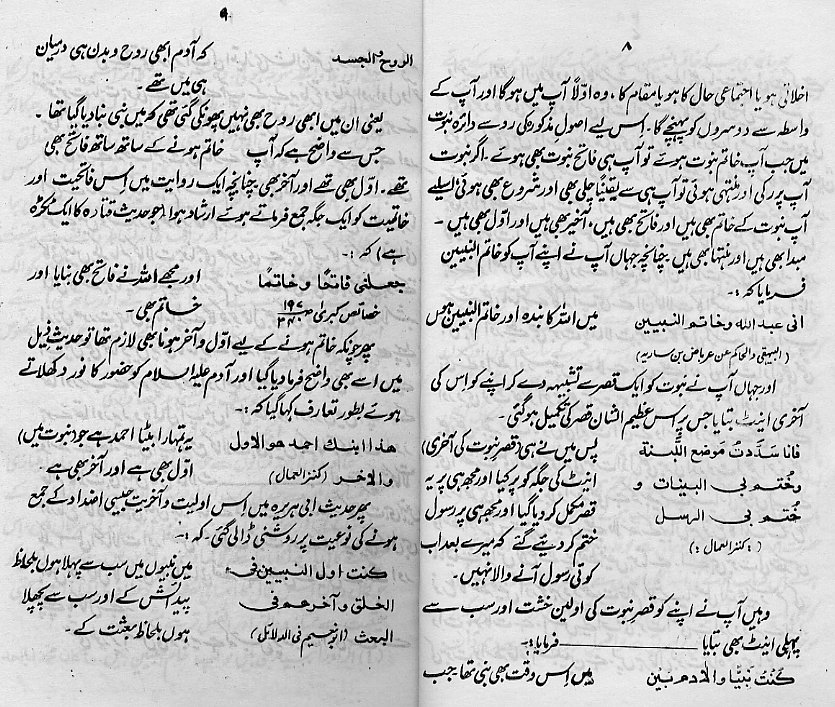 ۸
اخلاقی ہو یا اجتماعی حال کا ہو یا مقام کا، وہ اولاً آپ میں ہوگا اور آپ کے
واسطہ سے دوسروں کو پہنچے گا۔ اِس لیے اصولِ مذکورہ کی رو سے دائرہ نبوت
میں جب آپ خاتم نبوت ہوئے تو آپ ہی فاتح نبوت بھی ہوئے۔ اگر نبوت
آپ پر رکی اور منتہی ہوئی تو آپ ہی سے یقیناً چلی بھی اور شروع بھی ہوئی اسلیے
آپ نبوت کے خاتم بھی ہیں اور فاتح بھی ہیں، آخیر بھی ہیں اور اوّل بھی ہیں۔
مبدا بھی ہیں اور منتہا بھی ہیں چنانچہ جہاں آپ نے اپنے آپ کو خاتم النبیین
فرمایا کہ :۔
انی عبد الله وخاتم النبیین میں اللہ کا بندہ اور خاتم النبیین ہوں
(البیہقی والحاکم عن عرباض بن ساریہ)
اور جہاں آپ نے نبوت کو ایک قصر سے تشبیہ دے کر اپنے کو اس کی
آخری اینٹ بتایا جس پر اس عظیم الشان قصر کی تکمیل ہو گئی۔
فانا سَدَّدتُ مَوضع اللَّبنة پس میں نے ہی (قصرِ نبوت کی آخری)
وخُتم بی البینات و اینٹ کی جگہ کو پر کیا اور مجھ ہی پر یہ
خُتم بی الرسل قصر مکمل کر دیا گیا اور مجھ ہی پر رسول
(: کنز العمال :) ختم کر دیئے گئے کہ میرے بعد اب
کوئی رسول آنے والا نہیں۔
وہیں آپ نے اپنے کو قصرِ نبوت کی اولین خشت اور سب سے
پہلی اینٹ بھی بتایا ـــــــ فرمایا :۔
کُنتُ نبیًّا والآدم بین میں اس وقت بھی نبی تھا جب
۹
الروح والجسد کہ آدم ابھی روح و بدن ہی درمیان
ہی میں تھے۔
یعنی ان میں ابھی روح بھی نہیں پھونکی گئی تھی کہ میں نبی بنا دیا گیا تھا۔
جس سے واضح ہے کہ آپ خاتم ہونے کے ساتھ ساتھ فاتح بھی
تھے۔ اوّل بھی تھے اور آخر بھی چنانچہ ایک روایت میں اِس فاتحیت اور
خاتمیت کو ایک جگہ جمع فرماتے ہوئے ارشاد ہوا (جو حدیث قتادہ کا ایک ٹکڑہ
ہے) کہ :۔
جعلنی فاتحًا و خاتمًا اور مجھے اللہ نے فاتح بھی بنایا اور
خصائص کبری ۱۹۷/۳۴۰ خاتم بھی۔
پھر چونکہ خاتم ہونے کے لیے اوّل و آخر ہونا بھی لازم تھا تو حدیث ذیل
میں اسے بھی واضح فرما دیا گیا اور آدم علیہ السلام کو حضور کا نور دکھلاتے
ہوئے بطور تعارف کہا گیا کہ :۔
هذا ابنك احمد هو الاول یہ تمہارا بیٹا احمد ہے جو (نبوت میں)
والآخر (کنز العمال) اوّل بھی ہے اور آخر بھی ہے۔
پھر حدیث ابی ہریرہ میں اِس اولیت و آخریت جیسی اضداد کے جمع
ہونے کی نوعیت پر روشنی ڈالی گئی۔ کہ :۔
کنت اول النبیین فی میں نبیوں میں سب سے پہلا ہوں بلحاظ
الخلق و آخرهم فی پیدائش کے اور سب سے پچھلا
البعث (ابو نعیم فی الدلائل) ہوں بلحاظ بعثت کے۔